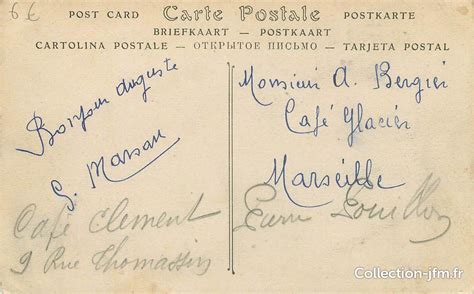 6€
POST CARD Carte Postale POSTKARTE
BRIEFKAART — POSTKAART
CARTOLINA POSTALE — ОТКРЫТОЕ ПИСЬМО — TARJETA POSTAL
Bonjour Auguste
G. Marsan
Café Clement
9 Rue Thomassin
Monsieur A. Bergier
Café Glacier
Marseille
Pierre
Collection-jfm.fr